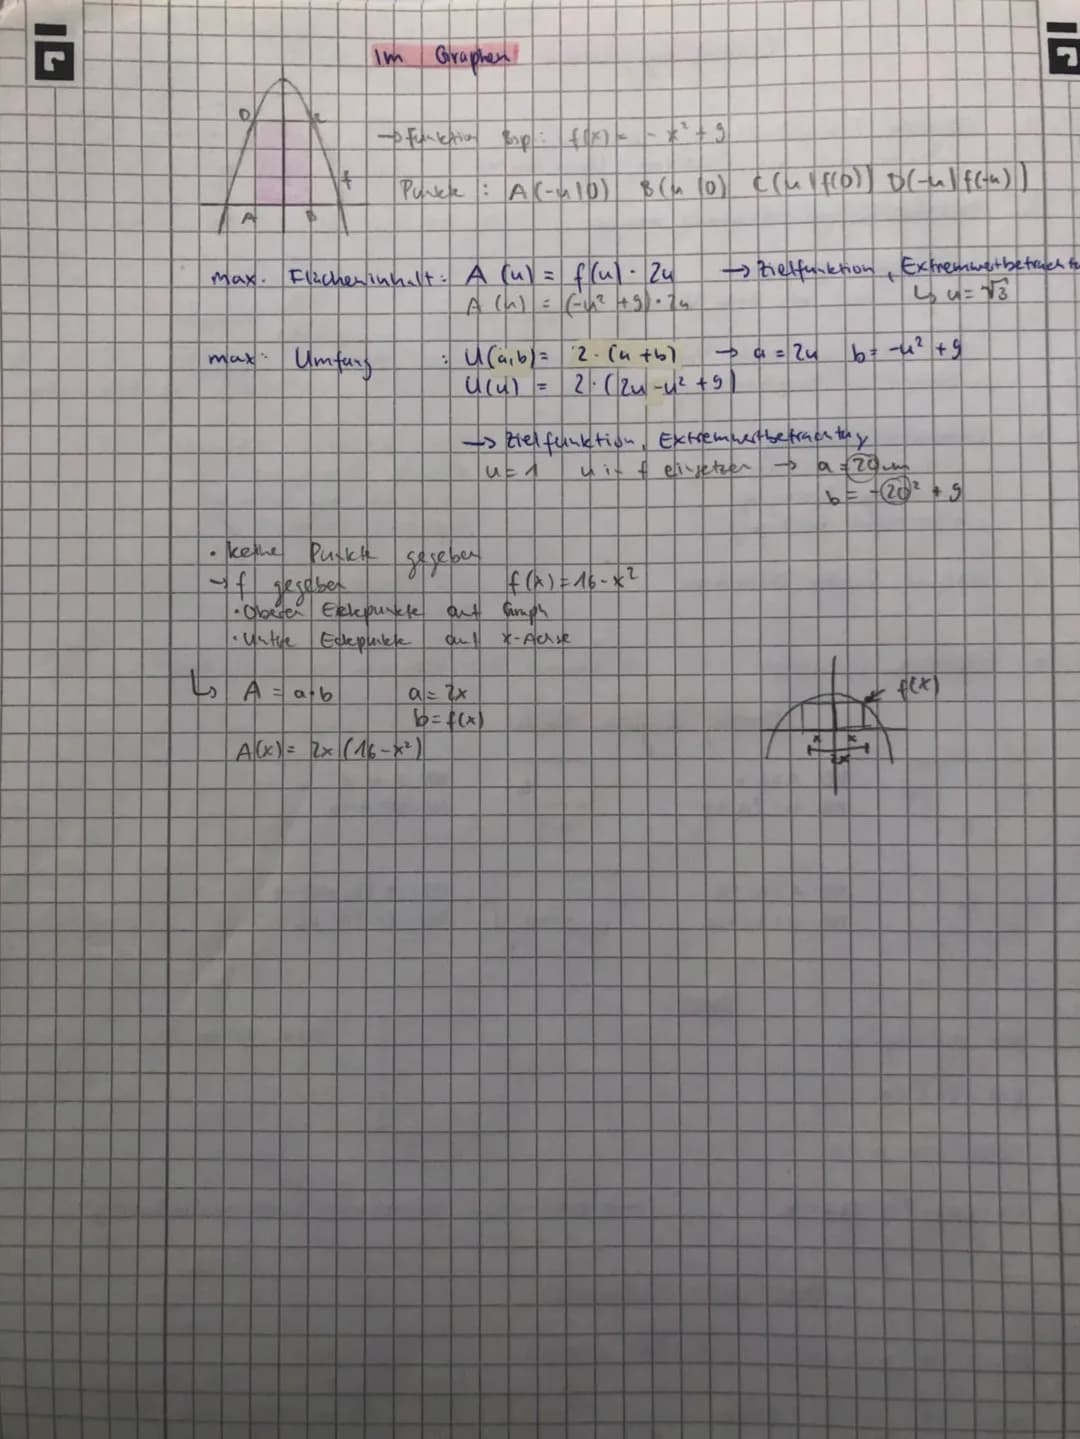 Im Graphen
D
f
A B
→ Funktion Bsp.: f(x) = -x² + 9
Punkte : A(-u|0) B(u|0) C(u|f(0)) D(-u|f(-u))
max. Flächeninhalt: A (u) = f(u) · 2u → Zielfunktion, Extremwertbetracht
A (u) = (-u² +9) · 2u ↳ u = √3
max. Umfang : U(a,b) = 2·(a+b) → a = 2u b = -u² + 9
U(u) = 2·(2u -u² +9)
→ Zielfunktion, Extremwertbetrachtung
u = 1 u in f einsetzen → a =
b = + 9
· keine Punkte gegeben
→ f gegeben f(x) = 16 - x²
· Oberen Eckpunkte auf Graph
· untere Eckpunkte auf x-Achse
↳ A = a·b a = 2x
b = f(x)
A(x) = 2x (16 - x²)
f(x)
x x
2x